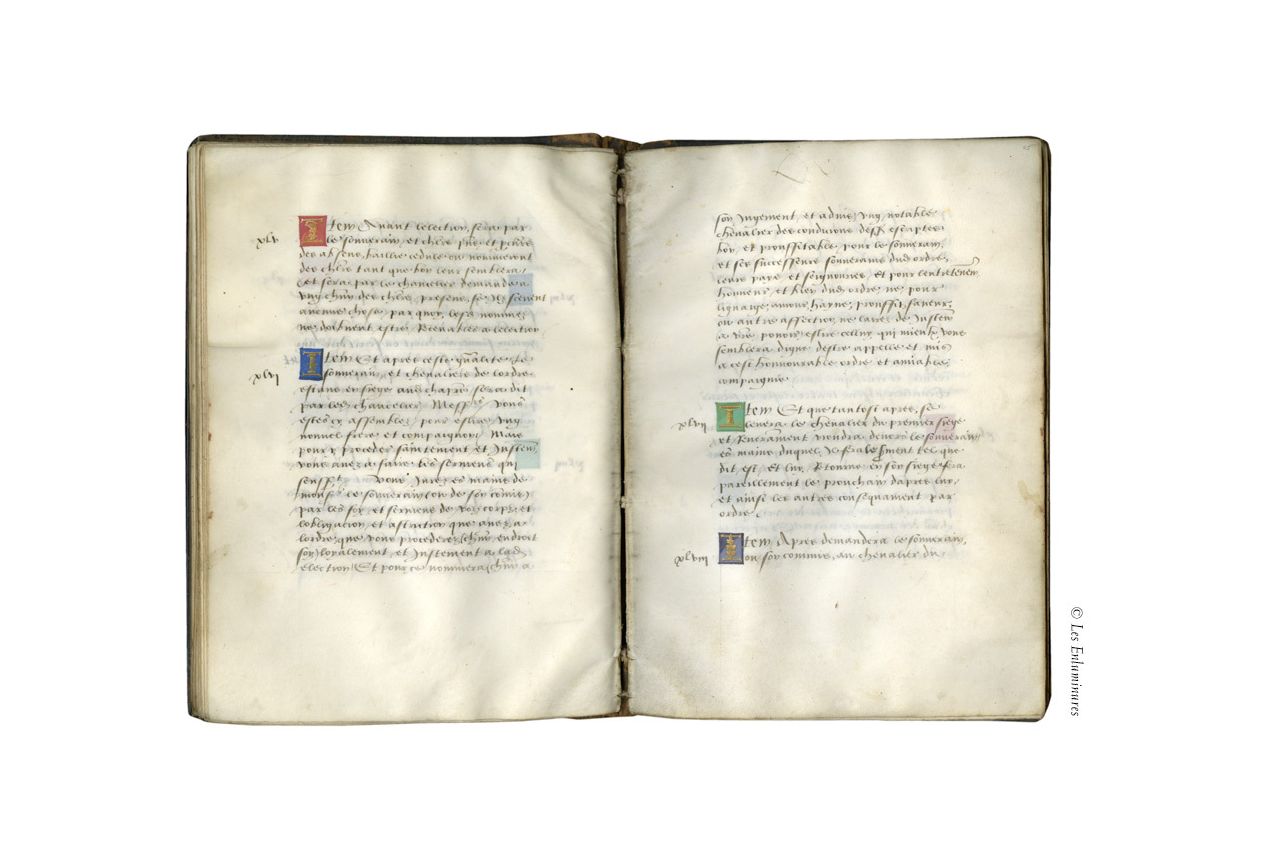 xlv
Item Avant lelection sera par
le souverain et chlrs pns et
des absens baillie cedule ou nommeront
des chlrs tant que bon leur semblera
et sera par le chancelier demande a
ung chun des chlrs presens se Ilz scevent
aucune chose par quoy lesd nommez
ne doibuent estre Recevables a lelection
xlvi
Item Et apres ceste qualite le
souverain et chevaliers de lordre
estans en siege aud chapre sera dit
par led chancelier Messrs vous
estes cy assemblez pour eslire ung
nouuel frere et compaignon Mais
pour y proceder saintement et Justemt
vous auez a faire les sermens qui
sensst Vous Jurez es mains de
monsr le souuerain ou de son comis
par les foy et sermens de voz corps et
lobligacion et astriction que auez a
lordre que vous procederez chun endroit
soy loyalement et Justement a lad
election Et pour ce nommera chun a
65
son Jugement et aduis ung notable
chevalier des condicions dess escriptes
bon et prouffitable pour le souuerain
et ses successeurs souuerains dud ordre
leurs pays et seignouries et pour lentretenemt
honneur et bien dud ordre ne pour
lignaige amour hayne prouffit faueur
ou autre affection ne lairez de Justemt
a vre pouoir eslire celluy qui mieulx vous
semblera digne destre appelle et mis
a cest honnourable ordre et amiable
compaignie
xlvii
Item Et que tantost apres se
leuera le chevalier du premier siege
et Reueramment viendra deuers le souuerain
es mains duquel Il fra serment tel que
dit est et luy Retourne en son siege fera
pareillement le prouchain dapres luy
et ainsi les autres consequamment par
ordre
xlviii
Item Apres demandera le souuerain
ou son commis au chevalier du
© Les Enluminures